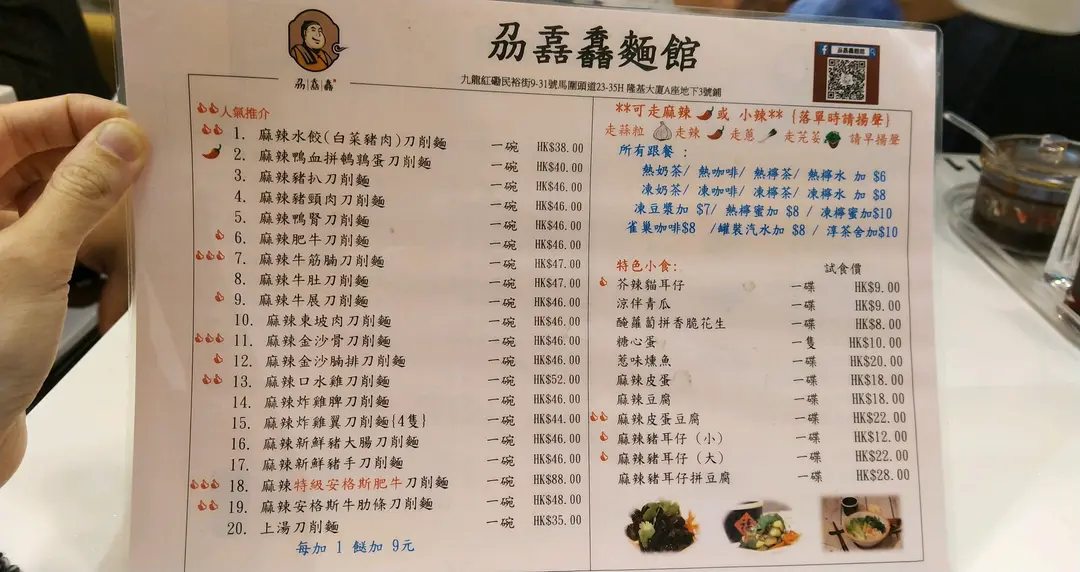 刕舙馫麵館
九龍紅磡民裕街9-31號馬圍頭道23-35H 隆基大廈A座地下3號鋪
人氣推介
1. 麻辣水餃(白菜豬肉)刀削麵 一碗 HK$38.00
2. 麻辣鴨血拼鵪鶉蛋刀削麵 一碗 HK$40.00
3. 麻辣豬扒刀削麵 一碗 HK$46.00
4. 麻辣豬頸肉刀削麵 一碗 HK$46.00
5. 麻辣鴨腎刀削麵 一碗 HK$46.00
6. 麻辣肥牛刀削麵 一碗 HK$46.00
7. 麻辣牛筋腩刀削麵 一碗 HK$47.00
8. 麻辣牛肚刀削麵 一碗 HK$47.00
9. 麻辣牛展刀削麵 一碗 HK$46.00
10. 麻辣東坡肉刀削麵 一碗 HK$46.00
11. 麻辣金沙骨刀削麵 一碗 HK$46.00
12. 麻辣金沙腩排刀削麵 一碗 HK$46.00
13. 麻辣口水雞刀削麵 一碗 HK$52.00
14. 麻辣炸雞脾刀削麵 一碗 HK$46.00
15. 麻辣炸雞翼刀削麵{4隻} 一碗 HK$44.00
16. 麻辣新鮮豬大腸刀削麵 一碗 HK$46.00
17. 麻辣新鮮豬手刀削麵 一碗 HK$46.00
18. 麻辣特級安格斯肥牛刀削麵 一碗 HK$88.00
19. 麻辣安格斯牛肋條刀削麵 一碗 HK$48.00
20. 上湯刀削麵 一碗 HK$35.00
每加 1 餸加 9元
**可走麻辣 或 小辣** {落單時請揚聲}
走蒜粒 走辣 走蔥 走芫荽 請早揚聲
所有跟餐 :
熱奶茶/ 熱咖啡/ 熱檸茶/ 熱檸水 加 $6
凍奶茶/ 凍咖啡/ 凍檸茶/ 凍檸水 加 $8
凍豆漿加 $7/ 熱檸蜜加 $8 / 凍檸蜜加$10
雀巢咖啡$8 /罐裝汽水加 $8 / 淳茶舍加$10
特色小食: 試食價
芥辣貓耳仔 一碟 HK$9.00
涼伴青瓜 一碟 HK$9.00
醃蘿蔔拼香脆花生 一碟 HK$8.00
糖心蛋 一隻 HK$10.00
惹味燻魚 一碟 HK$20.00
麻辣皮蛋 一碟 HK$18.00
麻辣豆腐 一碟 HK$18.00
麻辣皮蛋豆腐 一碟 HK$22.00
麻辣豬耳仔（小） 一碟 HK$12.00
麻辣豬耳仔（大） 一碟 HK$22.00
麻辣豬耳仔拼豆腐 一碟 HK$28.00